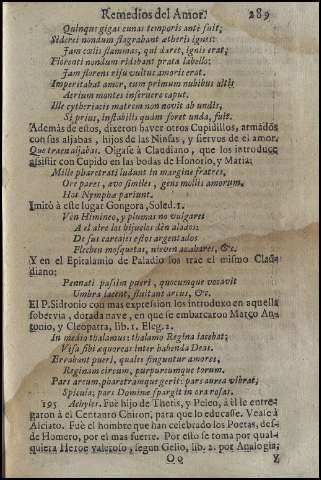 Remedios del Amor. 289
Quinque gigas cunas temporis ante fuit;
Siderei nondum flagrabant ætheris ignes:
Jam cœli flammas, qui daret, ignis erat;
Florenti nondum ridebant prata labello;
Jam florens risu vultus amoris erat.
Imperitabat amor, cum primum nubibus altis
Aerium montes inseruere caput.
Ille cytheriacis matrem non novit ab undis,
Si prius, instabilis quam foret unda, fuit.
Además de estos, dixeron haver otros Cupidillos, armados
con sus aljabas, hijos de las Ninfas, y siervos de el amor.
Que traen aljabas. Oigase à Claudiano, que los introduce
assistir con Cupido en las bodas de Honorio, y Maria:
Mille pharetrati ludunt in margine fratres,
Ore pares, ævo similes, gens mollis amorum.
Has Nymphæ pariunt.
Imitò à este lugar Gongora, Soled. 1.
Ven Himineo, y plumas no vulgares
A el aire los hijuelos dèn alados:
De sus carcajes estos argentados
Flechen mosquetas, nieven azahares, &c.
Y en el Epitalamio de Paladio los trae el mismo Clau-
diano:
Pennati passim pueri, quocumque vocavit
Umbra jacent, fluitant arcus, &c.
El P. Sidronio con mas expression los introduxo en aquella
sobervia, dorada nave, en que se embarcaron Marco An-
tonio, y Cleopatra, lib. 1. Eleg. 2.
In medio thalamus: thalamo Regina jacebat;
Visa sibi æquoreas inter habenda Deas.
Errabant pueri, quales finguntur amores,
Reginam circum, purpureumque torum.
Pars arcum, pharetramque gerit: pars aurea vibrat;
Spicula; pars Dominæ spargit in ora rosas.
195 Achyles. Fuè hijo de Thetis, y Peleo, à èl le entre-
garon à el Centauro Chiron, para que lo educasse. Vease à
Alciato. Fuè el hombre que han celebrado los Poetas, des-
de Homero, por el mas fuerte. Por esto se toma por qual-
quiera Heroe valeroso, segun Gelio, lib. 2. por Analogìa;
Oo